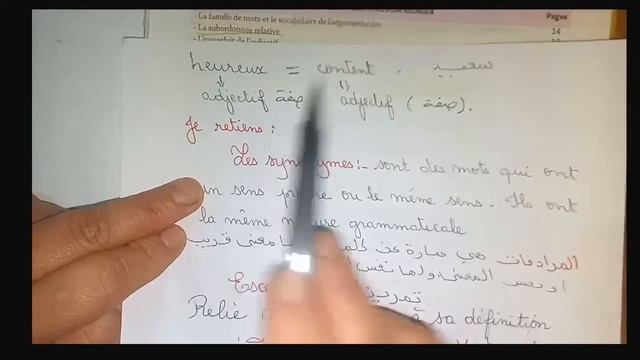 - La famille de mots et le vocabulaire de l'argumentation
Pages
- La subordonnée relative
14
- L'imparfait de l'indicatif
heureux = content . سعيد
adjectif صفة adjectif ( صفة ).
Je retiens :
Les synonymes :- sont des mots qui ont
un sens proche ou le même sens. Ils ont
la même nature grammaticale
المرادفات هي عبارة عن معنى قريب
او نفس المعنى ولها نفس
تمرين
Relie à sa définition